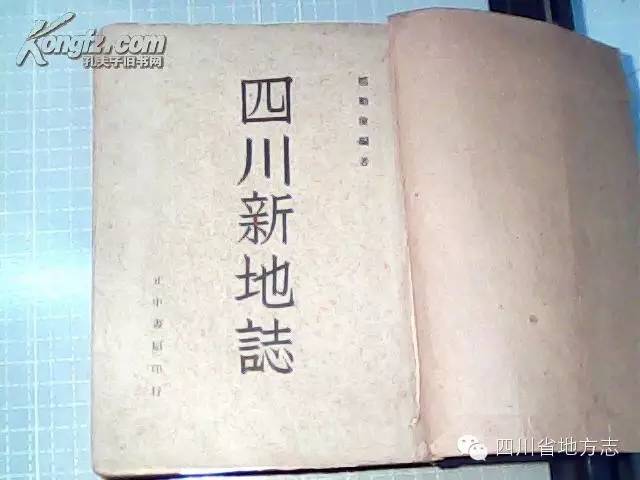 Kongfz.com
孔夫子旧书网
鄭勵儉編著
四川新地誌
正中書局印行
四川省地方志